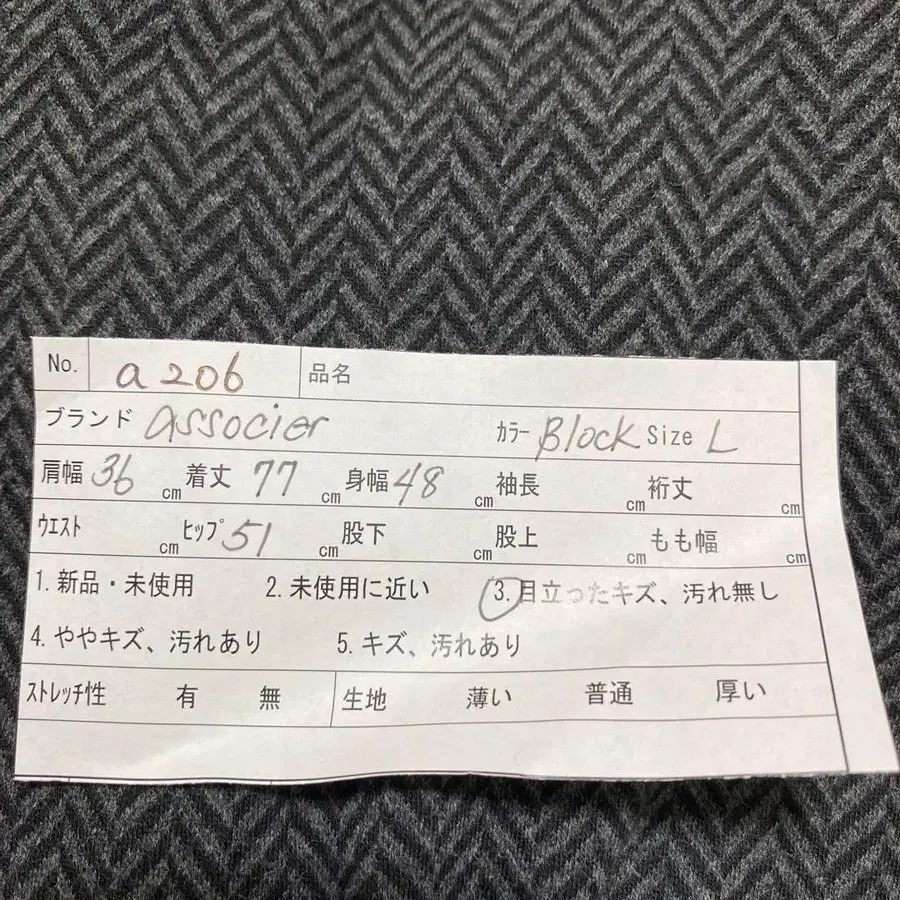 No. a206 品名
ブランド associer カラー Block Size L
肩幅 36 cm 着丈 77 cm 身幅 48 cm 袖長 cm 裄丈 cm
ウエスト cm ヒップ 51 cm 股下 cm 股上 cm もも幅 cm
1. 新品・未使用 2. 未使用に近い 3. 目立ったキズ、汚れ無し
4. ややキズ、汚れあり 5. キズ、汚れあり
ストレッチ性 有 無 生地 薄い 普通 厚い